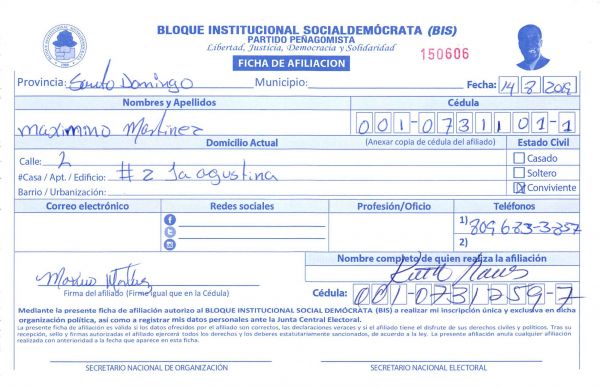 BLOQUE INSTITUCIONAL SOCIALDEMÓCRATA (BIS)
PARTIDO PEÑAGOMISTA
Libertad, Justicia, Democracia y Solidaridad
150606
FICHA DE AFILIACION
Provincia: Santo Domingo Municipio: Fecha: 14 8 2019
Nombres y Apellidos Cédula
Maximino Martinez 001-0731101-1
Domicilio Actual (Anexar copia de cédula del afiliado) Estado Civil
Calle: 2 Casado
#Casa / Apt. / Edificio: #2 La agustina Soltero
Barrio / Urbanización: Conviviente
Correo electrónico Redes sociales Profesión/Oficio Teléfonos
1) 809 683-3257
2)
Nombre completo de quien realiza la afiliación
Ruth
Firma del afiliado (Firme igual que en la Cédula) Cédula: 001-0731259-7
Mediante la presente ficha de afiliación autorizo al BLOQUE INSTITUCIONAL SOCIAL DEMÓCRATA (BIS) a realizar mi inscripción única y exclusiva en dicha
organización política, así como a registrar mis datos personales ante la Junta Central Electoral.
La presente ficha de afiliación es válida si los datos ofrecidos por el afiliado son correctos, las declaraciones veraces y si el afiliado tiene el disfrute de sus derechos civiles y políticos. Tras su
recepción, sello y firmas autorizadas el afiliado ejercerá todos los derechos y los deberes estatutariamente sancionados, de acuerdo a la ley. La presente afiliación anula cualquier afiliación
realizada con anterioridad a la fecha que aparece en esta ficha.
SECRETARIO NACIONAL DE ORGANIZACIÓN SECRETARIO NACIONAL ELECTORAL